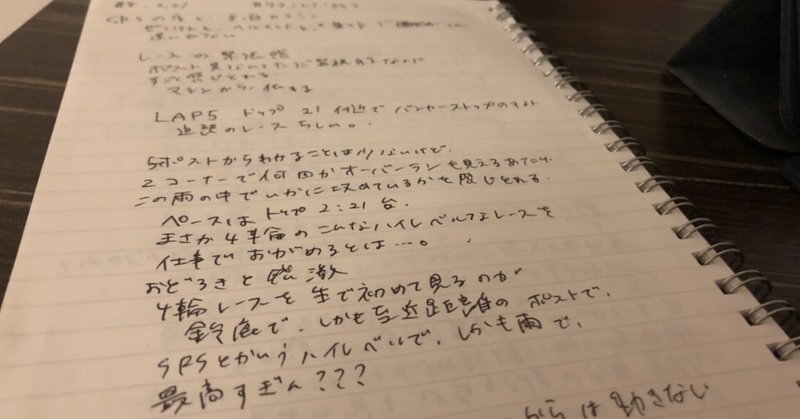 SRSの
レースの緊張感
ポスト
すごく感じとれる。
マシンから伝わる
LAP5 トップ 21付近で
追認のレースらしい。
5ポストからわかることは少ないけど、
2コーナーで何回かオーバーランも見えるあたり、
この雨の中でいかに攻めているかを感じとれる。
ペースはトップ 2:21台。
まさか4輪のこんなハイレベルなレースを
仕事でおがめるとは…。
おどろきと感激
4輪レースを生で初めて見るのが
鈴鹿で、しかも至近距離のポストで、
SRSとかいうハイレベルで、しかも雨で、
最高すぎん???
からは動きない